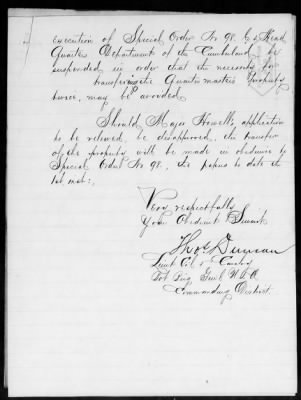 execution of Special Order No 98. C. S. Head
Quarters Department of the Cumberland be
suspended in order that the necessity for
transfering the Quarter masters Property
twice, may be avoided.
Should Major Howell's application
to be relieved be disapproved, the transfer
of the property will be made in obedience to
Special Order No 98, the papers to date the
1st inst.,
Very respectfully
Your Obedient Servant
Thos Duncan
Lieut Col 5" Cavalry
Bvt Brig Genl U.S.A
Commanding District